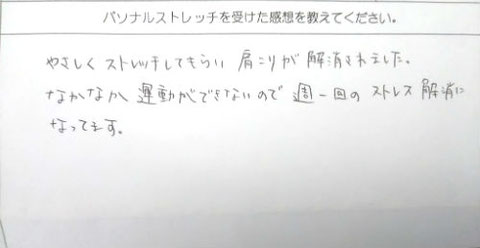 パソナルストレッチを受けた感想を教えてください。
やさしくストレッチしてもらい 肩こりが解消されました。
なかなか運動ができないので週一回のストレス解消に
なってます。